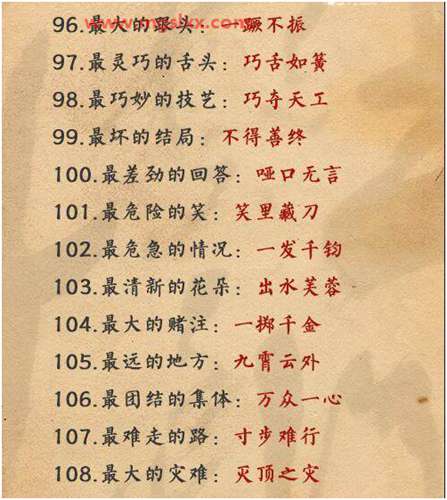 96.最大的跟头：一蹶不振
97.最灵巧的舌头：巧舌如簧
98.最巧妙的技艺：巧夺天工
99.最坏的结局：不得善终
100.最差劲的回答：哑口无言
101.最危险的笑：笑里藏刀
102.最危急的情况：一发千钧
103.最清新的花朵：出水芙蓉
104.最大的赌注：一掷千金
105.最远的地方：九霄云外
106.最团结的集体：万众一心
107.最难走的路：寸步难行
108.最大的灾难：灭顶之灾